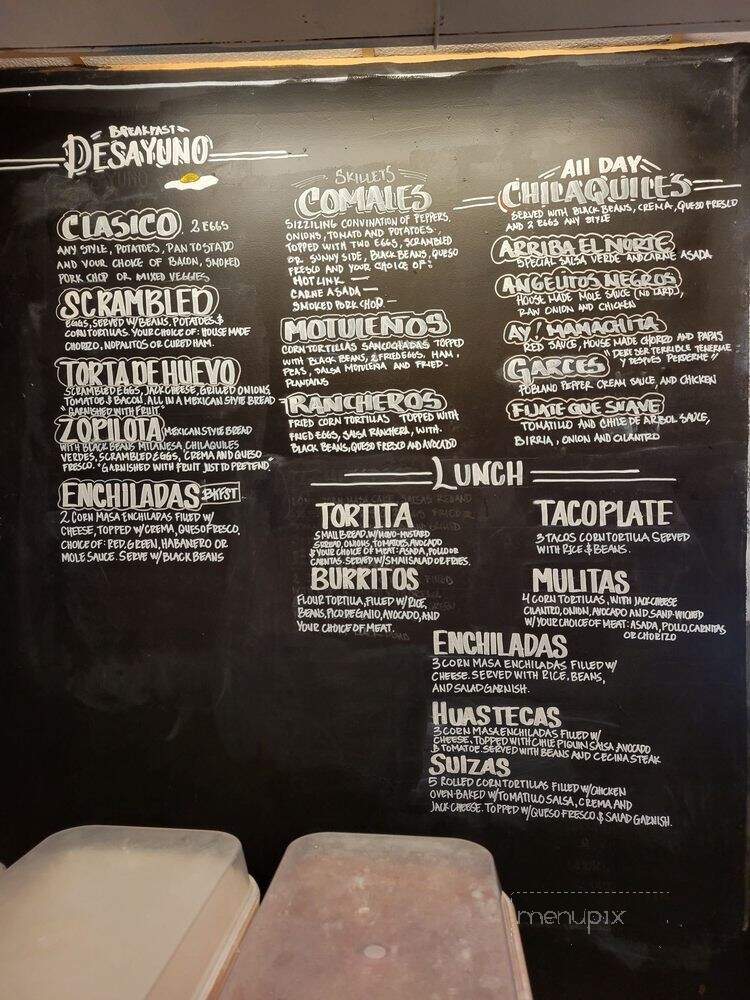 BREAKFAST
DESAYUNO
CLASICO 2 EGGS
ANY STYLE, POTATOES, PAN TOSTADO
AND YOUR CHOICE OF BACON, SMOKED
PORK CHOP OR MIXED VEGGIES
SCRAMBLED
EGGS, SERVED W/BEANS, POTATOES &
CORN TORTILLAS. YOUR CHOICE OF: HOUSE MADE
CHORIZO, NOPALITOS OR CURED HAM.
TORTA DE HUEVO
SCRAMBLED EGGS, JACK CHEESE, GRILLED ONIONS,
TOMATOE & BACON. ALL IN A MEXICAN STYLE BREAD
"GARNISHED WITH FRUIT"
ZOPILOTA MEXICAN STYLE BREAD
WITH BLACK BEANS MILANESA, CHILAQUILES
VERDES, SCRAMBLED EGGS, CREMA AND QUESO
FRESCO. "GARNISHED WITH FRUIT JUST TO PRETEND"
ENCHILADAS BKFST
2 CORN MASA ENCHILADAS FILLED W/
CHEESE, TOPPED W/CREMA, QUESO FRESCO.
CHOICE OF: RED, GREEN, HABANERO OR
MOLE SAUCE. SERVE W/BLACK BEANS
SKILLETS
COMALES
SIZZILING CONVINATION OF PEPPERS,
ONIONS, TOMATO AND POTATOES.
TOPPED WITH TWO EGGS, SCRAMBLED
OR SUNNY SIDE, BLACK BEANS, QUESO
FRESCO AND YOUR CHOICE OF:
HOT LINK —
CARNE ASADA —
SMOKED PORK CHOP —
MOTULEÑOS
CORN TORTILLAS SANCOCHADAS TOPPED
WITH BLACK BEANS, 2 FRIED EGGS, HAM,
PEAS, SALSA MOTULEÑA AND FRIED-
PLANTAINS
RANCHEROS
FRIED CORN TORTILLAS TOPPED WITH
FRIED EGGS, SALSA RANCHERA, WITH
BLACK BEANS, QUESO FRESCO AND AVOCADO
All DAY
CHILAQUILES
SERVED WITH BLACK BEANS, CREMA, QUESO FRESCO
AND 2 EGGS ANY STYLE
ARRIBA EL NORTE
SPECIAL SALSA VERDE AND CARNE ASADA
ANGELITOS NEGROS
HOUSE MADE MOLE SAUCE (NO LARD),
RAW ONION AND CHICKEN
AY! MAMACHITA
RED SAUCE, HOUSE MADE CHORIZO AND PAPAS
"DEBE SER TERRIBLE TENERME
Y DESPUES PERDERME"
GARCES
POBLANO PEPPER CREAM SAUCE, AND CHICKEN
FIJATE QUE SUAVE
TOMATILLO AND CHILE DE ARBOL SAUCE,
BIRRIA, ONION AND CILANTRO
LUNCH
TORTITA
SMALL BREAD, W/MAYO-MUSTARD
SPREAD, ONIONS, TOMATOES, AVOCADO
& YOUR CHOICE OF MEAT: ASADA, POLLO OR
CARNITAS. SERVED W/SMALL SALAD OR FRIES.
BURRITOS
FLOUR TORTILLA, FILLED W/RICE,
BEANS, PICO DE GALLO, AVOCADO, AND
YOUR CHOICE OF MEAT.
TACO PLATE
3 TACOS CORN TORTILLA SERVED
WITH RICE & BEANS.
MULITAS
4 CORN TORTILLAS, WITH JACK CHEESE
CILANTRO, ONION, AVOCADO AND SAND-WICHED
W/YOUR CHOICE OF MEAT: ASADA, POLLO, CARNITAS
OR CHORIZO
ENCHILADAS
3 CORN MASA ENCHILADAS FILLED W/
CHEESE. SERVED WITH RICE, BEANS,
AND SALAD GARNISH.
HUASTECAS
3 CORN MASA ENCHILADAS FILLED W/
CHEESE, TOPPED WITH CHILE PIQUIN SALSA, AVOCADO
& TOMATOE. SERVED WITH BEANS AND CECINA STEAK
SUIZAS
5 ROLLED CORN TORTILLAS FILLED W/CHICKEN
OVEN-BAKED W/TOMATILLO SALSA, CREMA, AND
JACK CHEESE. TOPPED W/QUESO FRESCO & SALAD GARNISH.
menupix